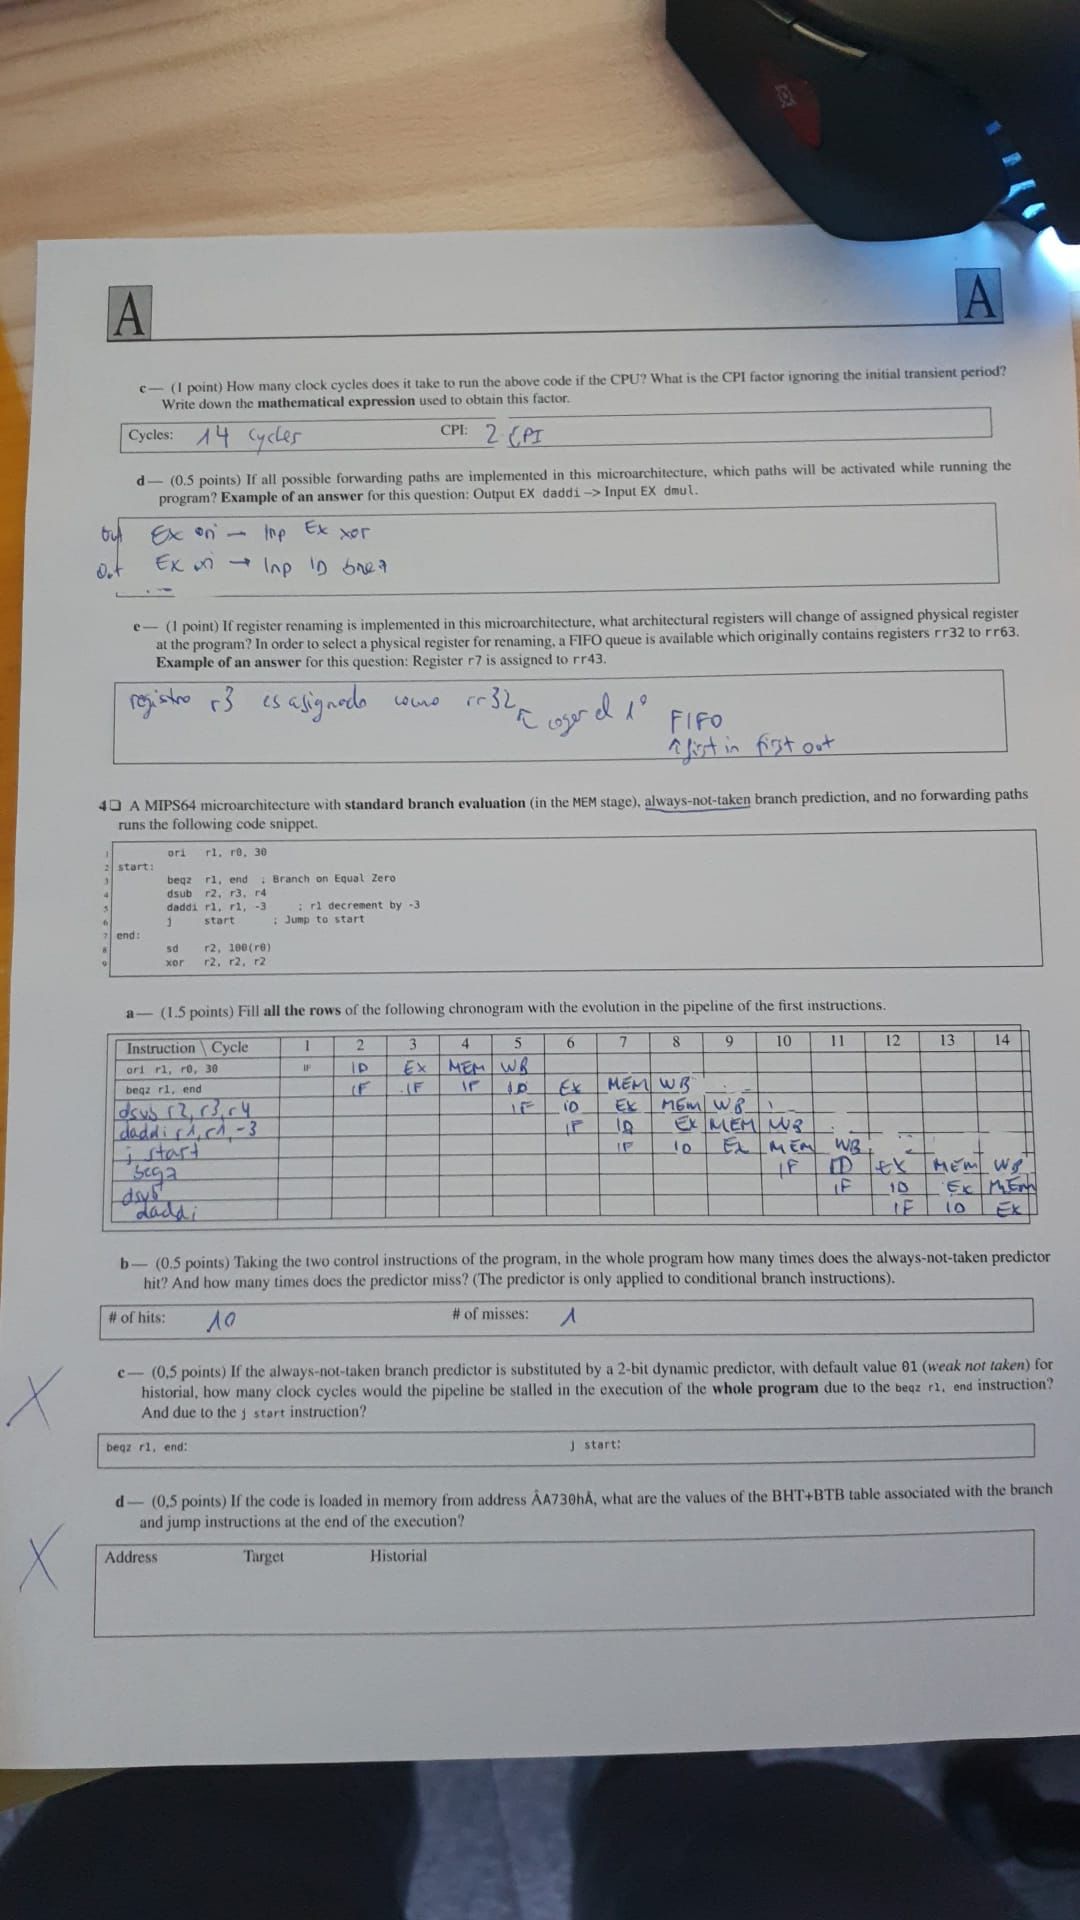 A A
c— (1 point) How many clock cycles does it take to run the above code if the CPU? What is the CPI factor ignoring the initial transient period?
Write down the mathematical expression used to obtain this factor.
Cycles: 14 cycles CPI: 2 CPI
d— (0.5 points) If all possible forwarding paths are implemented in this microarchitecture, which paths will be activated while running the
program? Example of an answer for this question: Output EX daddi -> Input EX dmul.
Out Ex ori → Inp Ex xor
Out Ex ori → Inp ID
e— (1 point) If register renaming is implemented in this microarchitecture, what architectural registers will change of assigned physical register
at the program? In order to select a physical register for renaming, a FIFO queue is available which originally contains registers rr32 to rr63.
Example of an answer for this question: Register r7 is assigned to rr43.
registro r3 es asignado como rr32
coger el 1º FIFO
first in first out
4❑ A MIPS64 microarchitecture with standard branch evaluation (in the MEM stage), always-not-taken branch prediction, and no forwarding paths
runs the following code snippet.
1 ori r1, r0, 30
2 start:
3 beqz r1, end ; Branch on Equal Zero
4 dsub r2, r3, r4
5 daddi r1, r1, -3 ; r1 decrement by -3
6 j start ; Jump to start
7 end:
8 sd r2, 100(r0)
9 xor r2, r2, r2
a— (1.5 points) Fill all the rows of the following chronogram with the evolution in the pipeline of the first instructions.
Instruction \ Cycle 1 2 3 4 5 6 7 8 9 10 11 12 13 14
ori r1, r0, 30 IF ID EX MEM WB
beqz r1, end IF IF IF ID EX MEM WB
dsub r2, r3, r4 IF ID EX MEM WB
daddi r1, r1, -3 IF ID EX MEM WB
j start IF ID EX MEM WB
beqz IF ID EX MEM WB
dsub IF ID EX MEM
daddi IF ID EX
b— (0.5 points) Taking the two control instructions of the program, in the whole program how many times does the always-not-taken predictor
hit? And how many times does the predictor miss? (The predictor is only applied to conditional branch instructions).
# of hits: 10 # of misses: 1
X
c— (0,5 points) If the always-not-taken branch predictor is substituted by a 2-bit dynamic predictor, with default value 01 (weak not taken) for
historial, how many clock cycles would the pipeline be stalled in the execution of the whole program due to the beqz r1, end instruction?
And due to the j start instruction?
beqz r1, end: j start:
X
d— (0,5 points) If the code is loaded in memory from address ÂA730hÂ, what are the values of the BHT+BTB table associated with the branch
and jump instructions at the end of the execution?
Address Target Historial